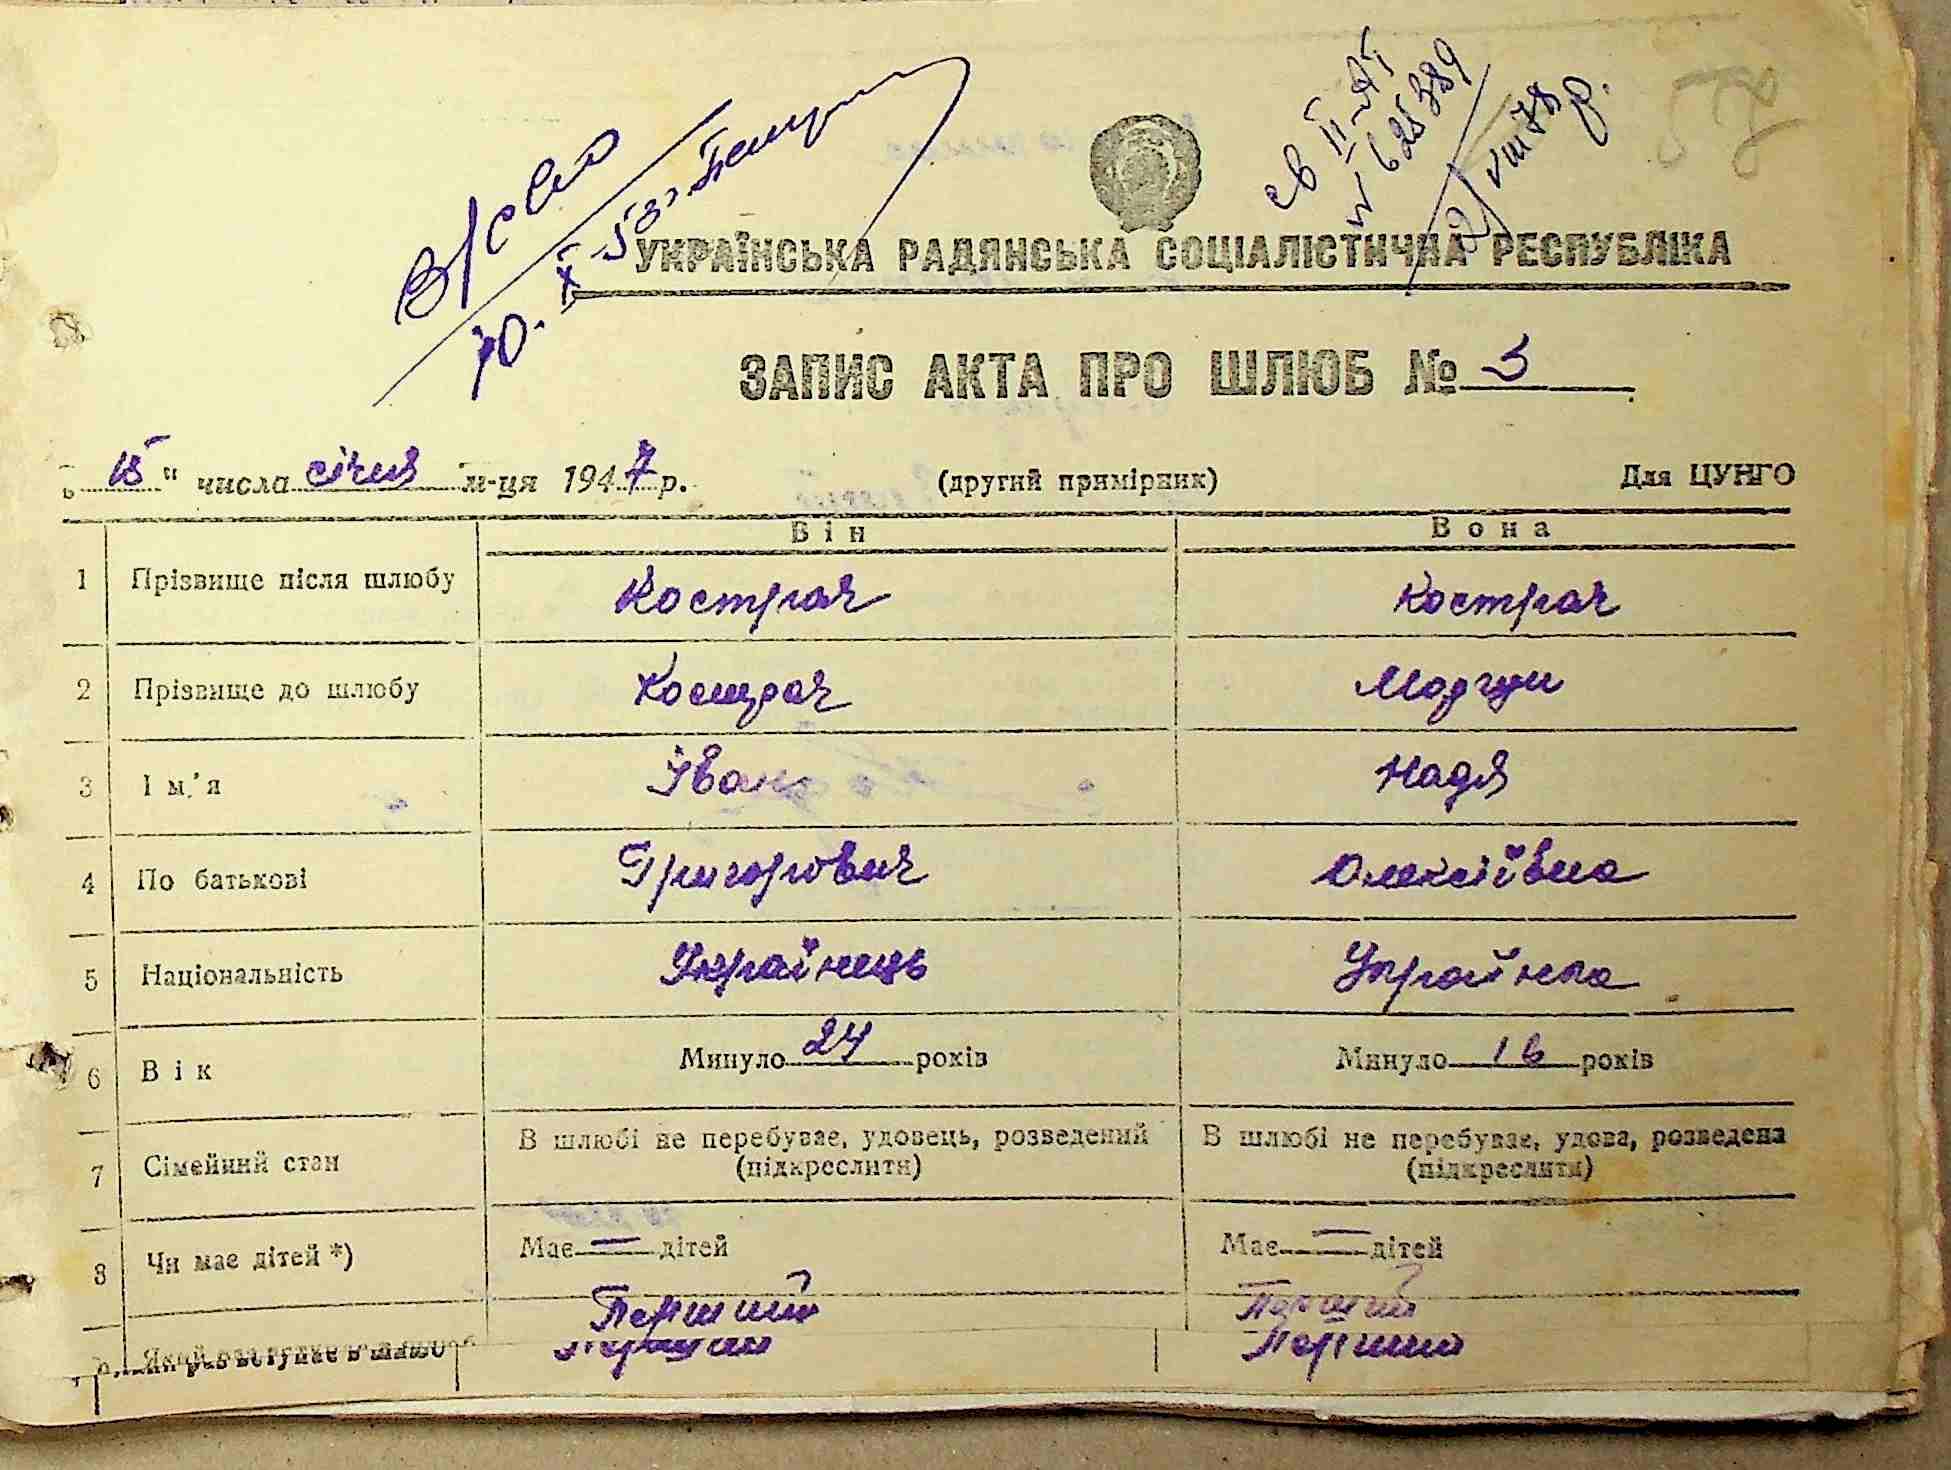 В/свід
10. Х-53 г.
св ІІ-АГ
№ 625389
2/VIII 78 р.
57
УКРАЇНСЬКА РАДЯНСЬКА СОЦІАЛІСТИЧНА РЕСПУБЛІКА
ЗАПИС АКТА ПРО ШЛЮБ № 3
„15“ числа січня м-ця 1947 р. (другий примірник) Для ЦУНГО
Він Вона
1 Прізвище після шлюбу Кострач Кострач
2 Прізвище до шлюбу Кострач Моргун
3 Ім'я Іван Надя
4 По батькові Григорович Олексіївна
5 Національність Українець Українка
6 Вік Минуло 24 років Минуло 16 років
7 Сімейний стан В шлюбі не перебуває, удовець, розведений (підкреслити) В шлюбі не перебуває, удова, розведена (підкреслити)
8 Чи має дітей *) Має — дітей Має — дітей
Перший Перший
Який раз вступає в шлюб Перший Перший